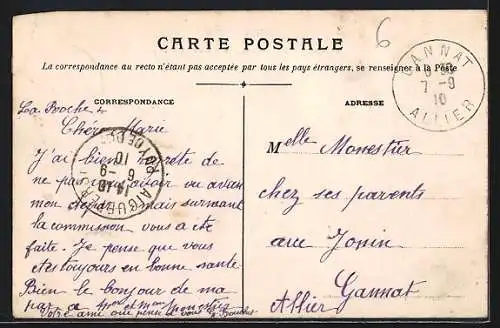 6
CARTE POSTALE
La correspondance au recto n'étant pas acceptée par tous les pays étrangers, se renseigner à la Poste
GANNAT
7 - 9
10
ALLIER
CORRESPONDANCE
ADRESSE
La Roche le
Chère Marie
J'ai bien regrété de
ne pas avoir vu avant
mon départ mais surmant
la commission vous a été
faite. Je pense que vous
êtes toujours en bonne santé
Bien le bonjour de ma
par a
Votre amie qui pense à vous
AIGUEPERSE
PUY-DE-DOME
6 - 9
10
Melle Monestier
chez ses parents
Gannat
Allier